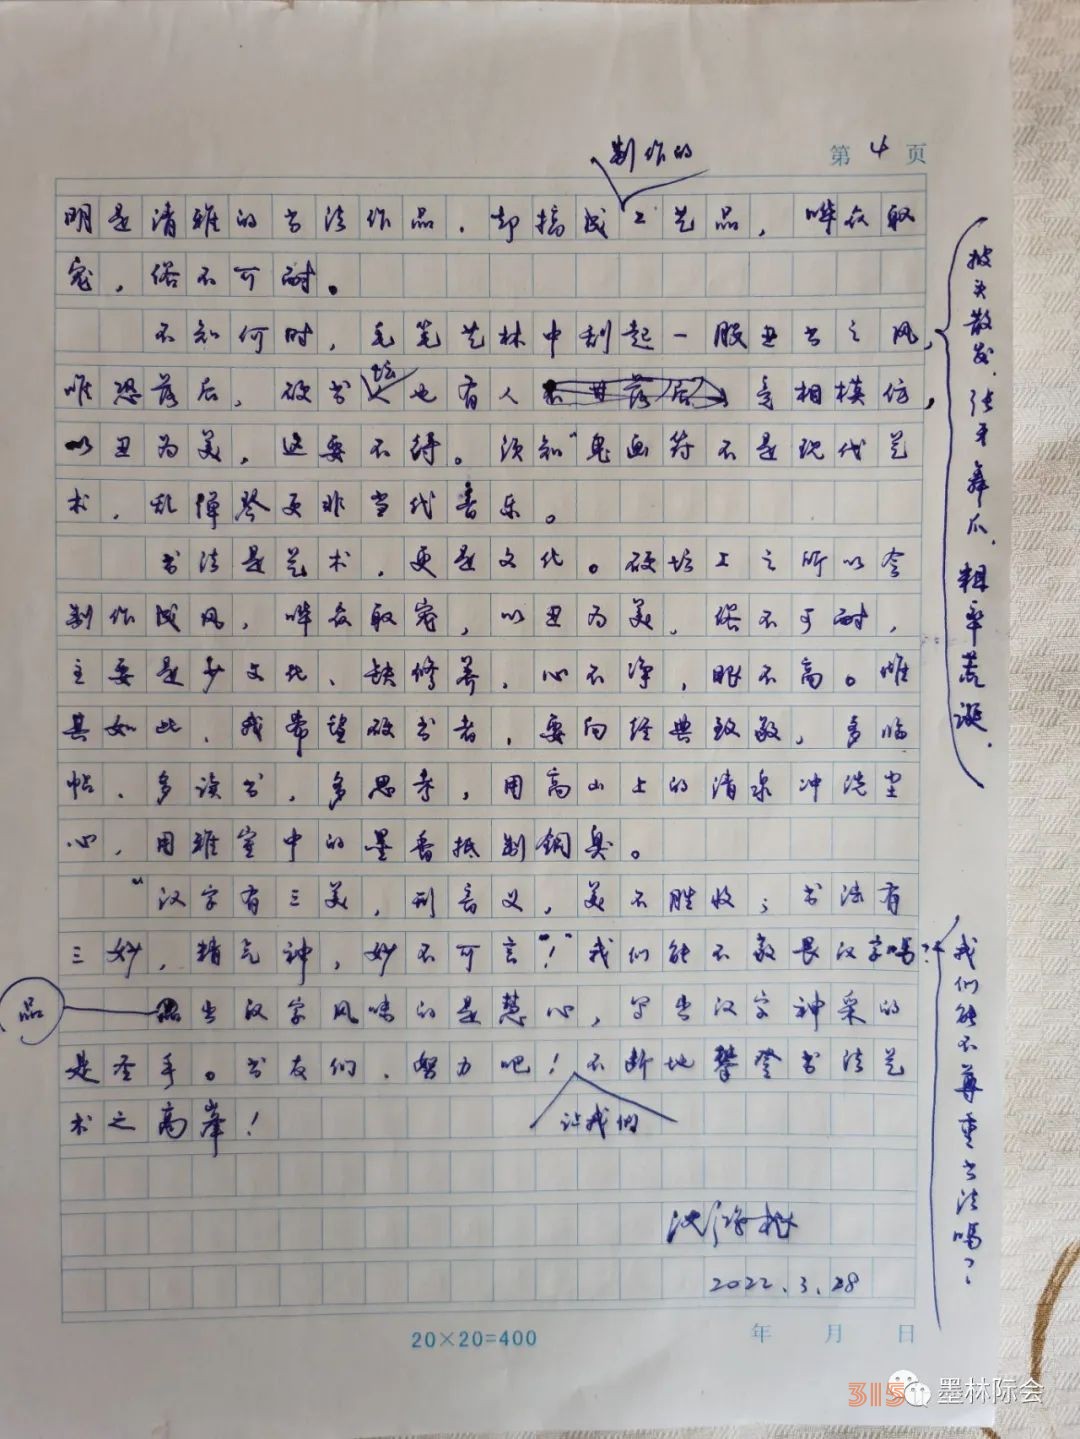 制作的
第 4 页
明是清雅的书法作品,却搞成工艺品,哗众取
宠,俗不可耐。
不知何时,毛笔艺林中刮起一股丑书之风,
披头散发、张牙舞爪、粗率荒诞,
唯恐落后,硬书坛也有人竞相模仿,
以丑为美,这要不得。须知"鬼画符不是现代艺
术,乱弹琴更非当代音乐。
书法是艺术,更是文化。硬坛上之所以会
制作成风,哗众取宠,以丑为美,俗不可耐,
主要是少文化、缺修养,心不净,眼不高。唯
其如此,我希望硬书者,要向经典致敬,多临
帖、多读书,多思考,用高山上的清泉冲洗尘
心,用雅室中的墨香抵制铜臭。
"汉字有三美,形音义,美不胜收;书法有
三妙,精气神,妙不可言"!我们能不敬畏汉字吗?
我们能不尊重书法吗?
品出汉字风味的是慧心,写出汉字神采的
是圣手。书友们,努力吧!不断地攀登书法艺
让我们
术之高峰!
2022.3.28
20×20=400
年 月 日
315
墨林际会